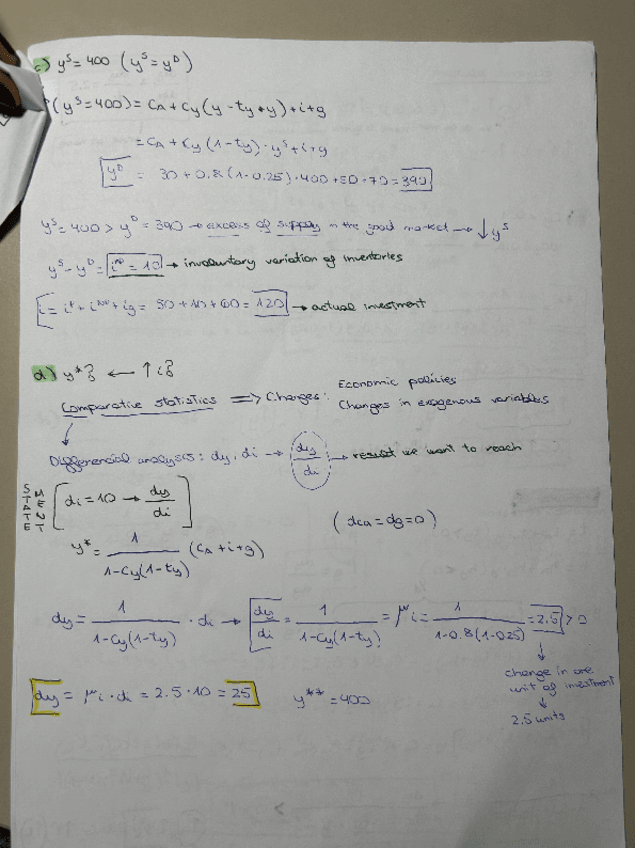 c) yˢ = 400 (yˢ = yᴰ)
(yˢ=400) = CA + Cy (y - ty + y) + i + g
= CA + Cy (1 - ty) · yˢ + i + g
yᴰ = 30 + 0.8 (1 - 0.25) · 400 + 50 + 70 = 390
yˢ = 400 > yᴰ = 390 → excess of supply in the good market → ↓ yˢ
yˢ - yᴰ = iᴺᴾ = 10 → involuntary variation of inventories
i = iᴾ + iᴺᴾ + ig = 50 + 10 + 60 = 120 → actual investment
d) y*? ← ↑ i?
Comparative statistics ⇒ Changes: Economic policies
Changes in exogenous variables
Differencial analysis: dy, di → dy/di → result we want to reach
STATEMENT [di = 10 → dy/di]
(dca = dg = 0)
y* = 1/(1 - Cy(1 - ty)) (CA + i + g)
dy = 1/(1 - Cy(1 - ty)) · di → dy/di = 1/(1 - Cy(1 - ty)) = μi = 1/(1 - 0.8(1 - 0.25)) = 2.5 > 0
change in one
unit of investment
↓
2.5 units
dy = μi · di = 2.5 · 10 = 25 y** = 400